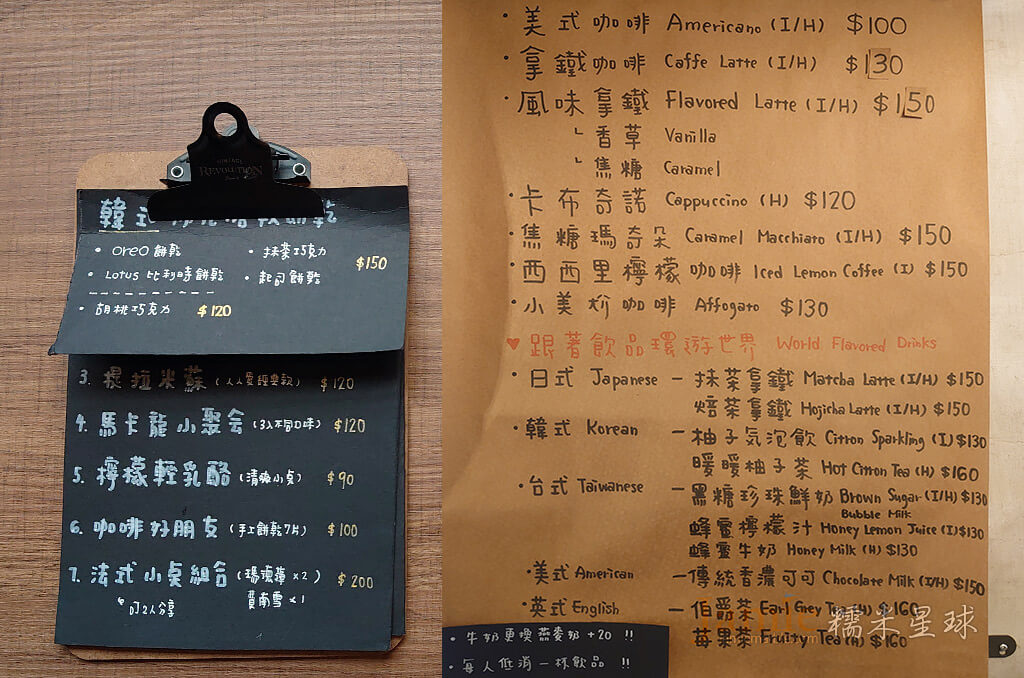 REVOLUTION
韓式
• Oreo 餅乾
• 抹茶巧克力
$150
• Lotus 比利時餅乾
• 起司餅乾
• 胡桃巧克力 $120
3. 提拉米蘇 (人人愛經典款) $120
4. 馬卡龍小聚会 (3入不同口味) $120
5. 檸檬輕乳酪 (清爽小桌) $90
6. 咖啡好朋友 (手工餅乾7片) $100
7. 法式小桌組合 (瑪德蓮 x2) $200
費南雪 x1
可2人分享
• 美式咖啡 Americano (I/H) $100
• 拿鐵咖啡 Caffe Latte (I/H) $130
• 風味拿鐵 Flavored Latte (I/H) $150
香草 Vanilla
焦糖 Caramel
• 卡布奇諾 Cappuccino (H) $120
• 焦糖瑪奇朵 Caramel Macchiato (I/H) $150
• 西西里檸檬咖啡 Iced Lemon Coffee (I) $150
• 小美尒咖啡 Affogato $130
♥ 跟著飲品環遊世界 World Flavored Drinks
• 日式 Japanese — 抹茶拿鐵 Matcha Latte (I/H) $150
焙茶拿鐵 Hojicha Latte (I/H) $150
• 韓式 Korean — 柚子気泡飲 Citron Sparkling (I) $130
暖暖柚子茶 Hot Citron Tea (H) $160
• 台式 Taiwanese — 黑糖珍珠鮮奶 Brown Sugar (I/H) $130
Bubble Milk
蜂蜜檸檬汁 Honey Lemon Juice (I) $130
蜂蜜牛奶 Honey Milk (H) $130
• 美式 American — 傳統香濃可可 Chocolate Milk (I/H) $150
• 英式 English — 伯爵茶 Earl Grey Tea (H) $160
莓果茶 Fruity Tea (H) $160
糯米星球
• 牛奶更換燕麥奶 +20 !!
• 每人低消一杯飲品 !!